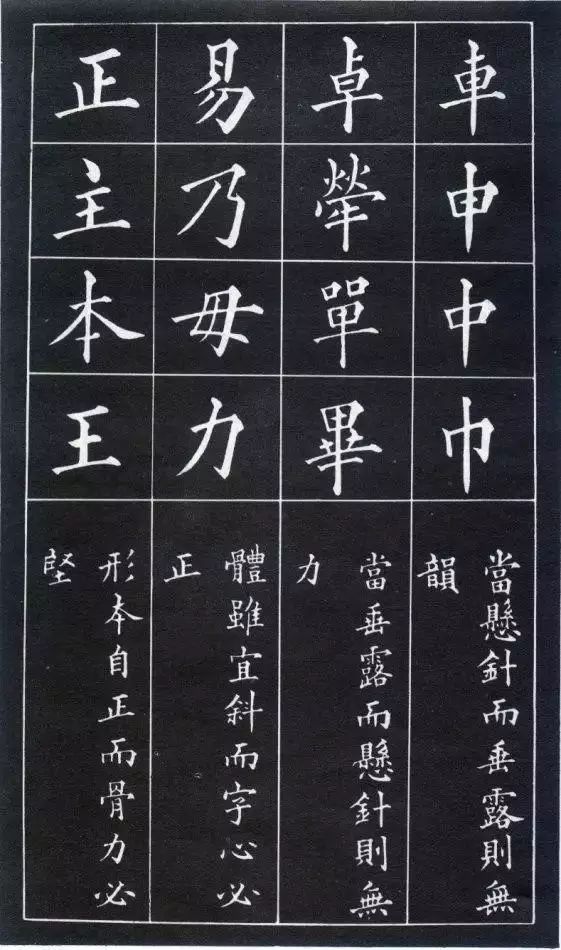 車申中巾
當懸針而垂露則無
韻
卓犖單畢
當垂露而懸針則無
力
易乃毋力
體雖宜斜而字心必
正
正主本王
形本自正而骨力必
堅